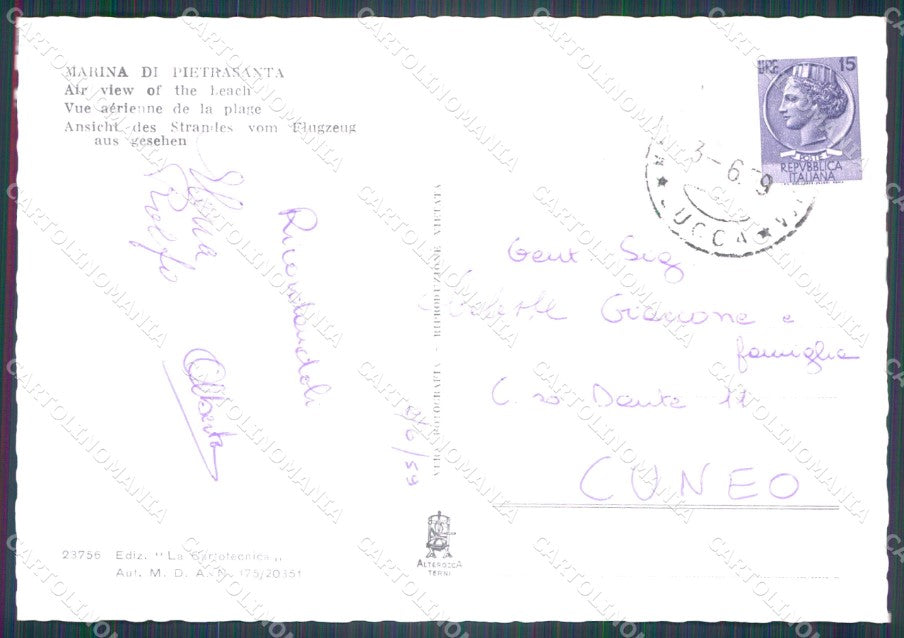 MARINA DI PIETRASANTA
Air view of the beach
Vue aérienne de la plage
Ansicht des Strandes vom Flugzeug
aus gesehen
Ricordandoli
Alberta
2/6/59
VERA FOTOGRAFIA - RIPRODUZIONE VIETATA
LIRE 15
POSTE
REPVBBLICA
ITALIANA
3-6.59
LUCCA
Gent. Sig
Giaccone e
famiglia
C. so Dante 11
CUNEO
23756 Ediz. "La Cartotecnica"
Aut. M. D. A. N. 175/20351
ALTEROCCA
TERNI
CARTOLINOMANIA